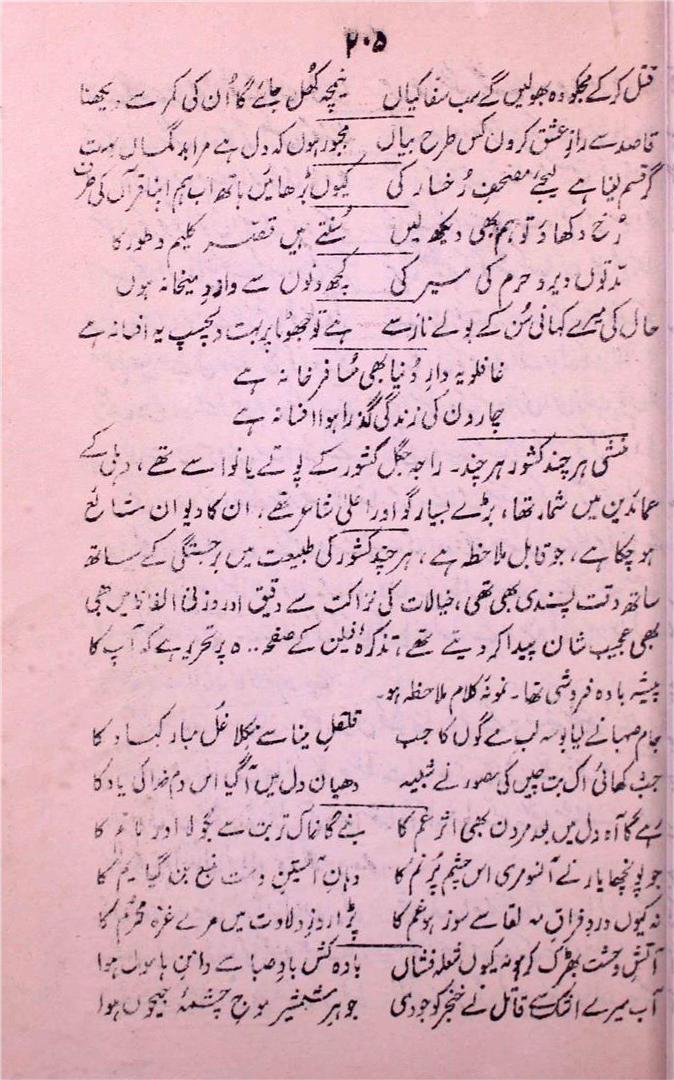 ۲۰۵
قتل کر کے مجکو وہ بھولیں گے سب سفاکیاں نیمچہ کھُل جائے گا اُن کی کمر سے دیکھنا
قاصد سے رازِ عشق کروں کس طرح بیاں مجبور ہوں کہ دل ہے مرا بدگماں بہت
گر قسم لینا ہے لیجے مصحفِ رُخسار کی کیوں بڑھائیں ہاتھ اب ہم اپنا قرآں کی طرف
رُخ دکھاؤ تو ہم بھی دیکھ لیں سُنتے ہیں قصہ کلیم و طور کا
مدتوں دیر و حرم کی سیر کی کچھ دنوں سے واردِ میخانہ ہوں
حال کی میرے کہانی سُن کے بولے ناز سے ہے تو جھوٹا پر بہت دلچسپ یہ افسانہ ہے
غافلو یہ دارِ دُنیا بھی مُسافر خانہ ہے
چار دن کی زندگی گذرا ہوا افسانہ ہے
منشی ہر چند کشور ہرچند۔ راجہ جگل کشور کے پوتے یا نواسے تھے، دہلی کے
عمائدین میں شمار تھا، بڑے بسیار گو اور اعلیٰ شاعر تھے، ان کا دیوان شائع
ہو چکا ہے، جو قابل ملاحظہ ہے، ہر چند کشور کی طبیعت میں برجستگی کے ساتھ
ساتھ دقت پسندی بھی تھی، خیالات کی نزاکت سے دقیق اور وزنی الفاظ میں بھی
بھی عجیب شان پیدا کر دیتے تھے، تذکرہ کے صفحہ پر تحریر ہے کہ آپ کا
پیشہ بادہ فروشی تھا۔ نمونۂ کلام ملاحظہ ہو۔
جام صہبا نے لیا بوسہ لب مے گوں کا جب قلقلِ مینا سے نکلا غُل مبارکباد کا
جب کھائی اک بت چیں کی مصور نے شبیہ دھیان دل میں آگیا اس دم خدا کی یاد کا
رہے گا آہ دل میں بعد مردن بھی اثر غم کا بنے گا خاک تربت سے بگولا اور ماتم کا
جو پونچھا یار نے آنسو مری اس چشم پُر نم کا دہانِ آستین دست منبع بن گیا یم کا
نہ کیوں درد فراقِ مہ لقا سے سوز ہو غم کا پڑا روزِ ولادت میں مرے غرہ محرم کا
آتشِ وحشت بھڑک کر ہو نہ کیوں شعلہ فشاں بادہ کش بادِ صبا سے دامنِ ہاموں ہوا
آب میرے اشک سے قاتل نے خنجر کو جو دی جوہر شمشیر موجِ چشمۂ جیحوں ہوا